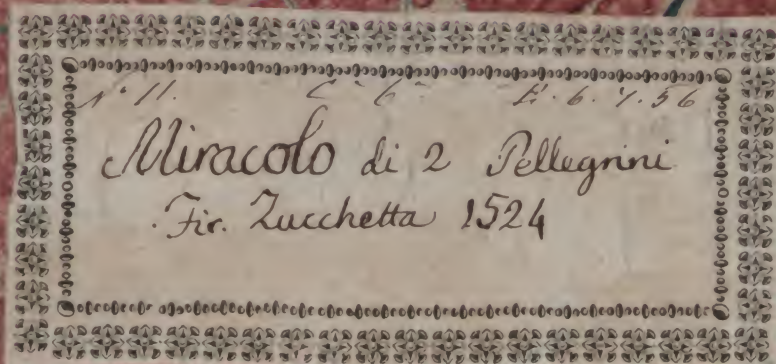 N° 11. C° 6° E. 6. 7. 56
Miracolo di 2 Pellegrini
Fir. Zucchetta 1524